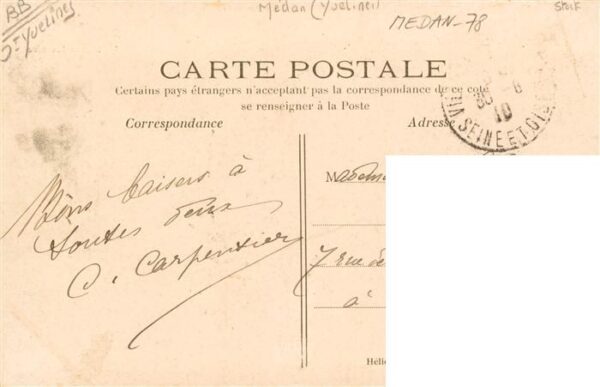 BB
Yvelines
Medan (Yvelines)
MEDAN_78
Stock
CARTE POSTALE
Certains pays étrangers n'acceptant pas la correspondance de ce coté
se renseigner à la Poste
Correspondance
Adresse
SEINE ET
10
baisers à
toutes deux
C. Carpentier
7 rue de
à
Hélio